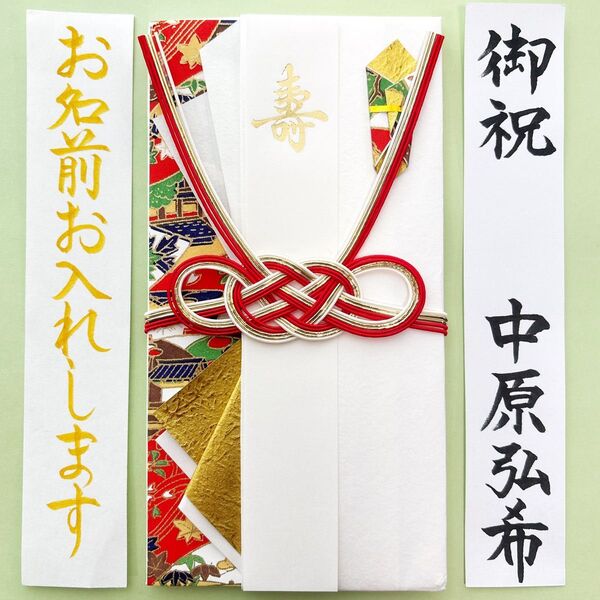 御祝
中原弘希
寿
お名前お入れします